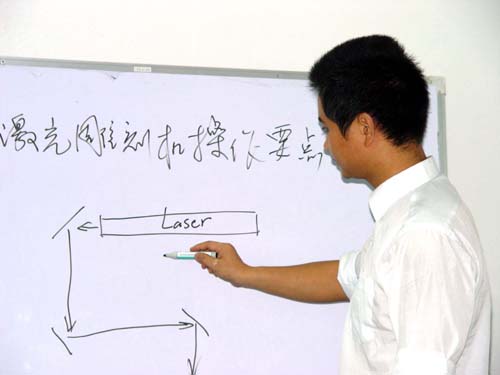 激光雕刻机操作要点
Laser